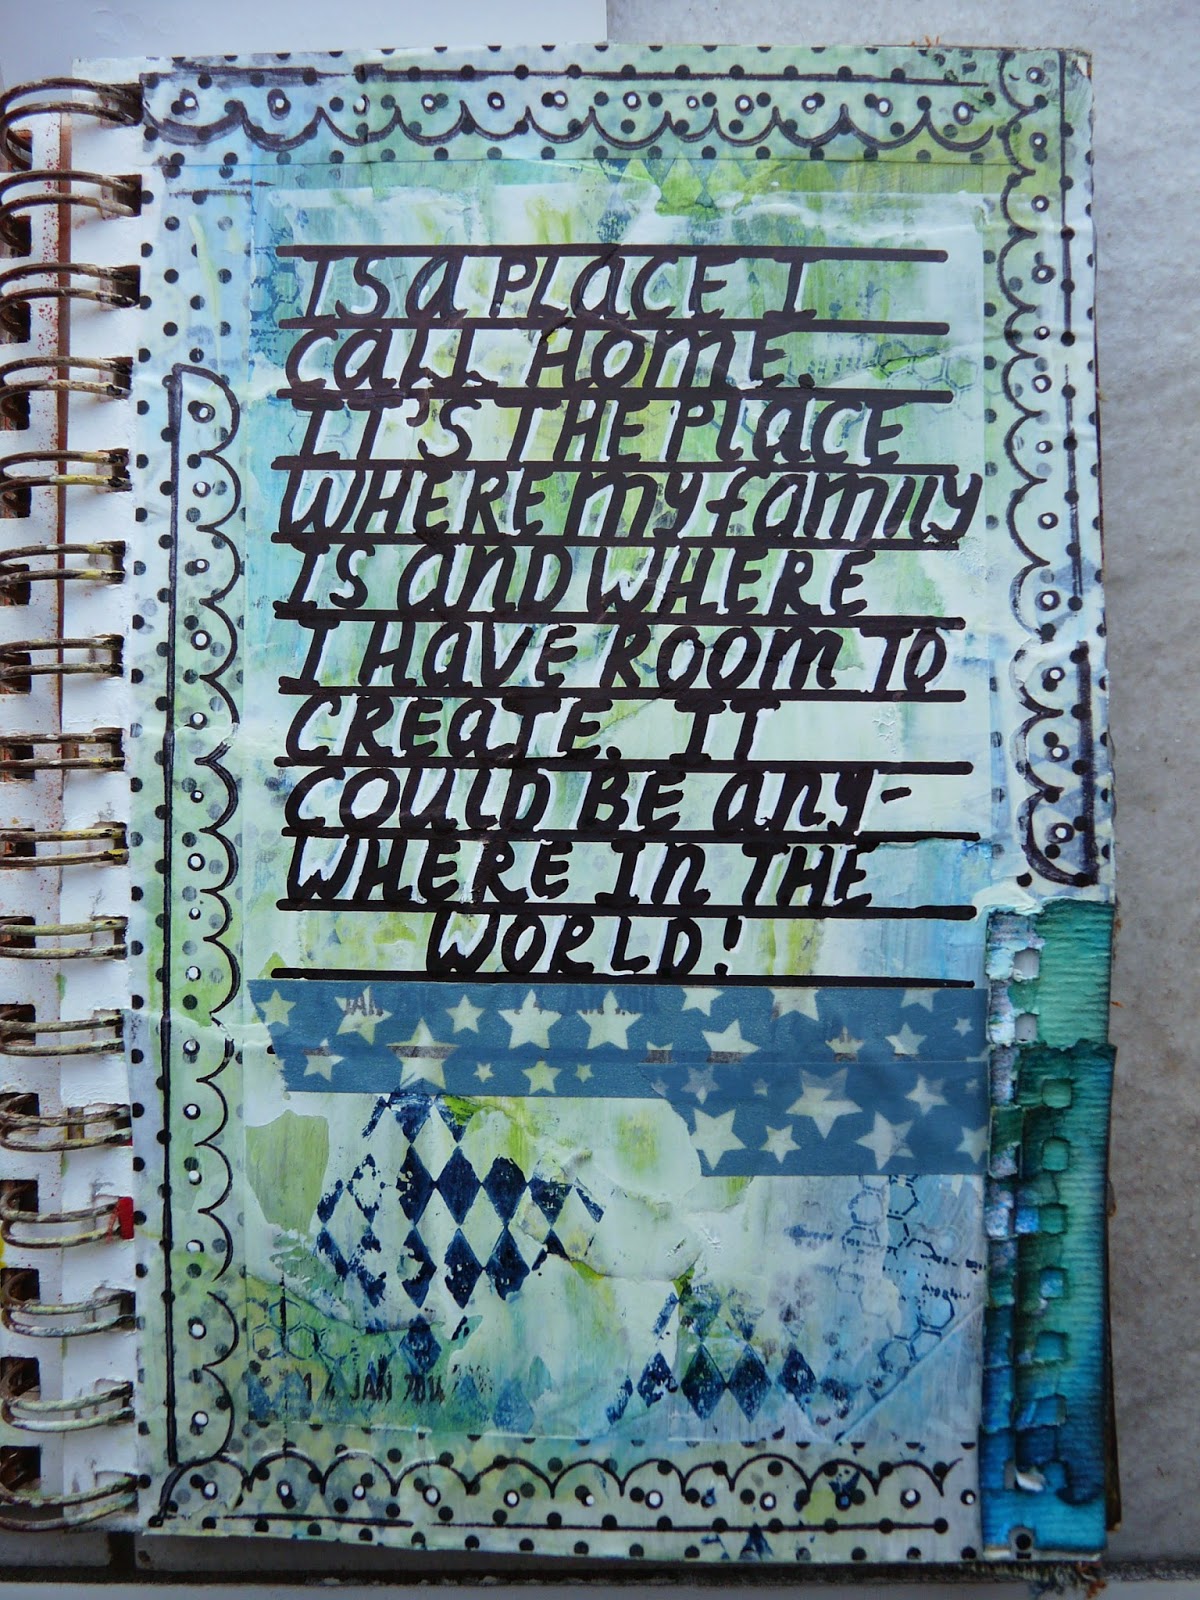 Is a PLaCE I
CaLL HomE.
IT'S THE PLaCE
WHERE my family
IS anD WHERE
I HaVE ROOm TO
CREaTE. IT
COULD BE any-
WHERE In THE
WORLD!
14 JAN 2014